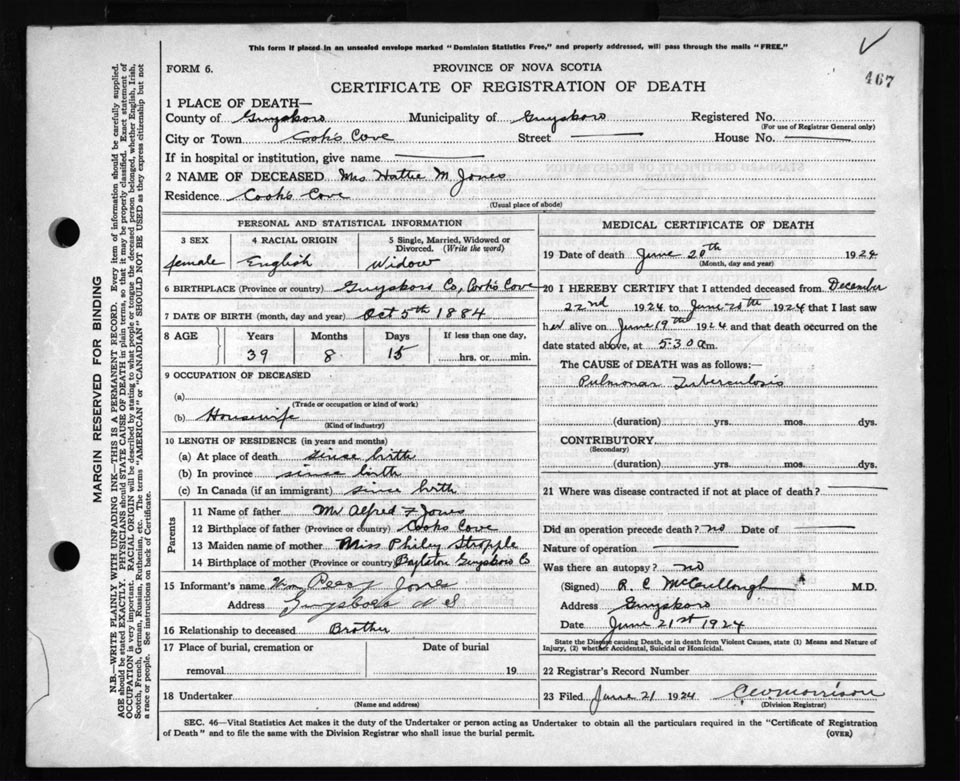 This form if placed in an unsealed envelope marked "Dominion Statistics Free," and properly addressed, will pass through the mails "FREE."
467
FORM 6.
PROVINCE OF NOVA SCOTIA
CERTIFICATE OF REGISTRATION OF DEATH
1 PLACE OF DEATH—
County of Guysboro Municipality of Guysboro Registered No.
(For use of Registrar General only)
City or Town Cook's Cove Street House No.
If in hospital or institution, give name
2 NAME OF DECEASED Mrs Hattie M Jones
Residence Cook's Cove
(Usual place of abode)
PERSONAL AND STATISTICAL INFORMATION
3 SEX 4 RACIAL ORIGIN 5 Single, Married, Widowed or Divorced. (Write the word)
female English Widow
6 BIRTHPLACE (Province or country) Guysboro Co, Cooks Cove
7 DATE OF BIRTH (month, day and year) Oct 5th 1884
8 AGE Years Months Days If less than one day,
39 8 15 hrs. or min.
9 OCCUPATION OF DECEASED
(a)
(Trade or occupation or kind of work)
(b) Housewife
(Kind of industry)
10 LENGTH OF RESIDENCE (in years and months)
(a) At place of death since birth
(b) In province since birth
(c) In Canada (if an immigrant) since birth
Parents
11 Name of father Mr Alfred F Jones
12 Birthplace of father (Province or country) Cooks Cove
13 Maiden name of mother Miss Philey Stropple
14 Birthplace of mother (Province or country) Guysboro Co
15 Informant's name Wm Percy Jones
Address Guysboro N S
16 Relationship to deceased Brother
17 Place of burial, cremation or removal Date of burial 19
18 Undertaker
(Name and address)
MEDICAL CERTIFICATE OF DEATH
19 Date of death June 20th 1924
(Month, day and year)
20 I HEREBY CERTIFY that I attended deceased from December
22nd 1924 to June 20th 1924 that I last saw
her alive on June 19th 1924 and that death occurred on the
date stated above, at 5.30 a.m.
The CAUSE of DEATH was as follows:
Pulmonar Tuberculosis
(duration) yrs. mos. dys.
CONTRIBUTORY
(Secondary)
(duration) yrs. mos. dys.
21 Where was disease contracted if not at place of death?
Did an operation precede death? no Date of
Nature of operation
Was there an autopsy? no
(Signed) R. C McCullough M.D.
Address Guysboro
Date June 21st 1924
State the Disease causing Death, or in death from Violent Causes, state (1) Means and Nature of
Injury, (2) whether Accidental, Suicidal or Homicidal.
22 Registrar's Record Number
23 Filed June 21 1924 CW Morrison
(Division Registrar)
SEC. 46—Vital Statistics Act makes it the duty of the Undertaker or person acting as Undertaker to obtain all the particulars required in the "Certificate of Registration
of Death" and to file the same with the Division Registrar who shall issue the burial permit.
(OVER)
MARGIN RESERVED FOR BINDING
N.B.—WRITE PLAINLY WITH UNFADING INK—THIS IS A PERMANENT RECORD. Every item of information should be carefully supplied.
AGE should be stated EXACTLY. PHYSICIANS should STATE CAUSE OF DEATH in plain terms, so that it may be properly classified. Exact statement of
OCCUPATION is very important. RACIAL ORIGIN will be described by stating to what people or tongue the deceased person belonged, whether English, Irish,
Scotch, French, German, Russian, Ruthenian, etc. The terms "AMERICAN" or "CANADIAN" SHOULD NOT BE USED as they express citizenship but not
a race or people. See instructions on back of Certificate.